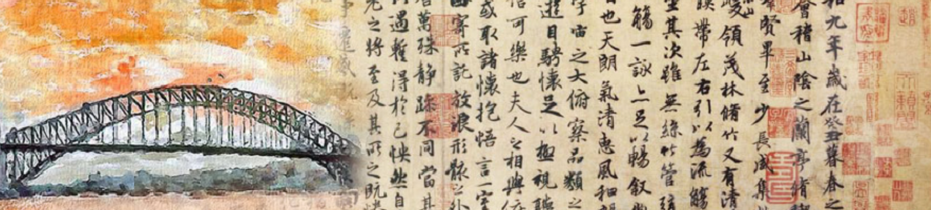 和九年歲在癸丑暮春之
會稽山陰之蘭亭脩
羣賢畢至少長咸集
峻領茂林脩竹又有清
暎帶左右引以為流觴
坐其次雖無絲竹管
觴一詠亦足以暢敘
日也天朗氣清惠風和
宇宙之大俯察品類之
遊目騁懷足以極視聽
信可樂也夫人之相與
或取諸懷抱悟言一室
寄所託放浪形骸之外
舍萬殊靜躁不同當其
遇暫得於己怏然自
老之將至及其所之既
事遷感